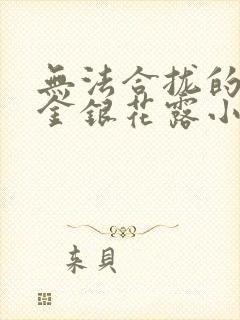 無法合拢的
金銀花露小
来貝